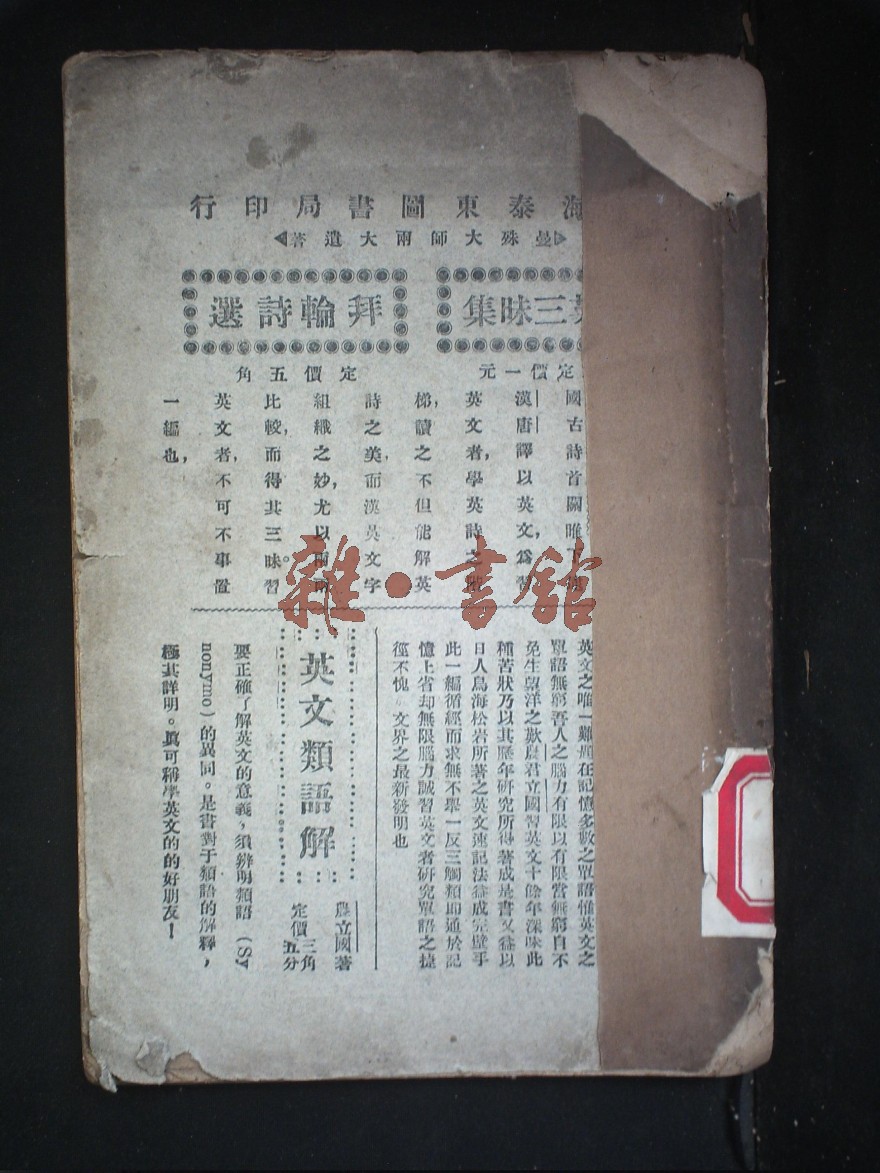 海泰東圖書局印行
曼殊大師兩大遺著
三昧集
定價一元
拜輪詩選
定價五角
國古詩首關雎下
漢唐譯以英文，爲習
英文者，學英詩之
梯，讀之不但能解英
詩之美，而漢英文字
組織之妙，尤以兩
比較，而得其三昧。習
英文者，不可不事置
一編也，
英文之唯一難題在記憶多數之單語惟英文之
單語無窮吾人之腦力有限以有限當無窮自不
免生望洋之歎農君立國習英文十餘年深味此
種苦狀乃以其歷年研究所得著成是書又益以
日人鳥海松岩所著之英文速記法益成完璧手
此一編循經而求無不舉一反三觸類而通於記
憶上省却無限腦力誠習英文者研究單語之捷
徑不愧 文界之最新發明也
英文類語解
農立國著
定價三角五分
要正確了解英文的意義，須辨明類語（Sy
nonymo）的異同。是書對于類語的解釋，
極其詳明。眞可稱學英文的的好朋友！
雜·書館